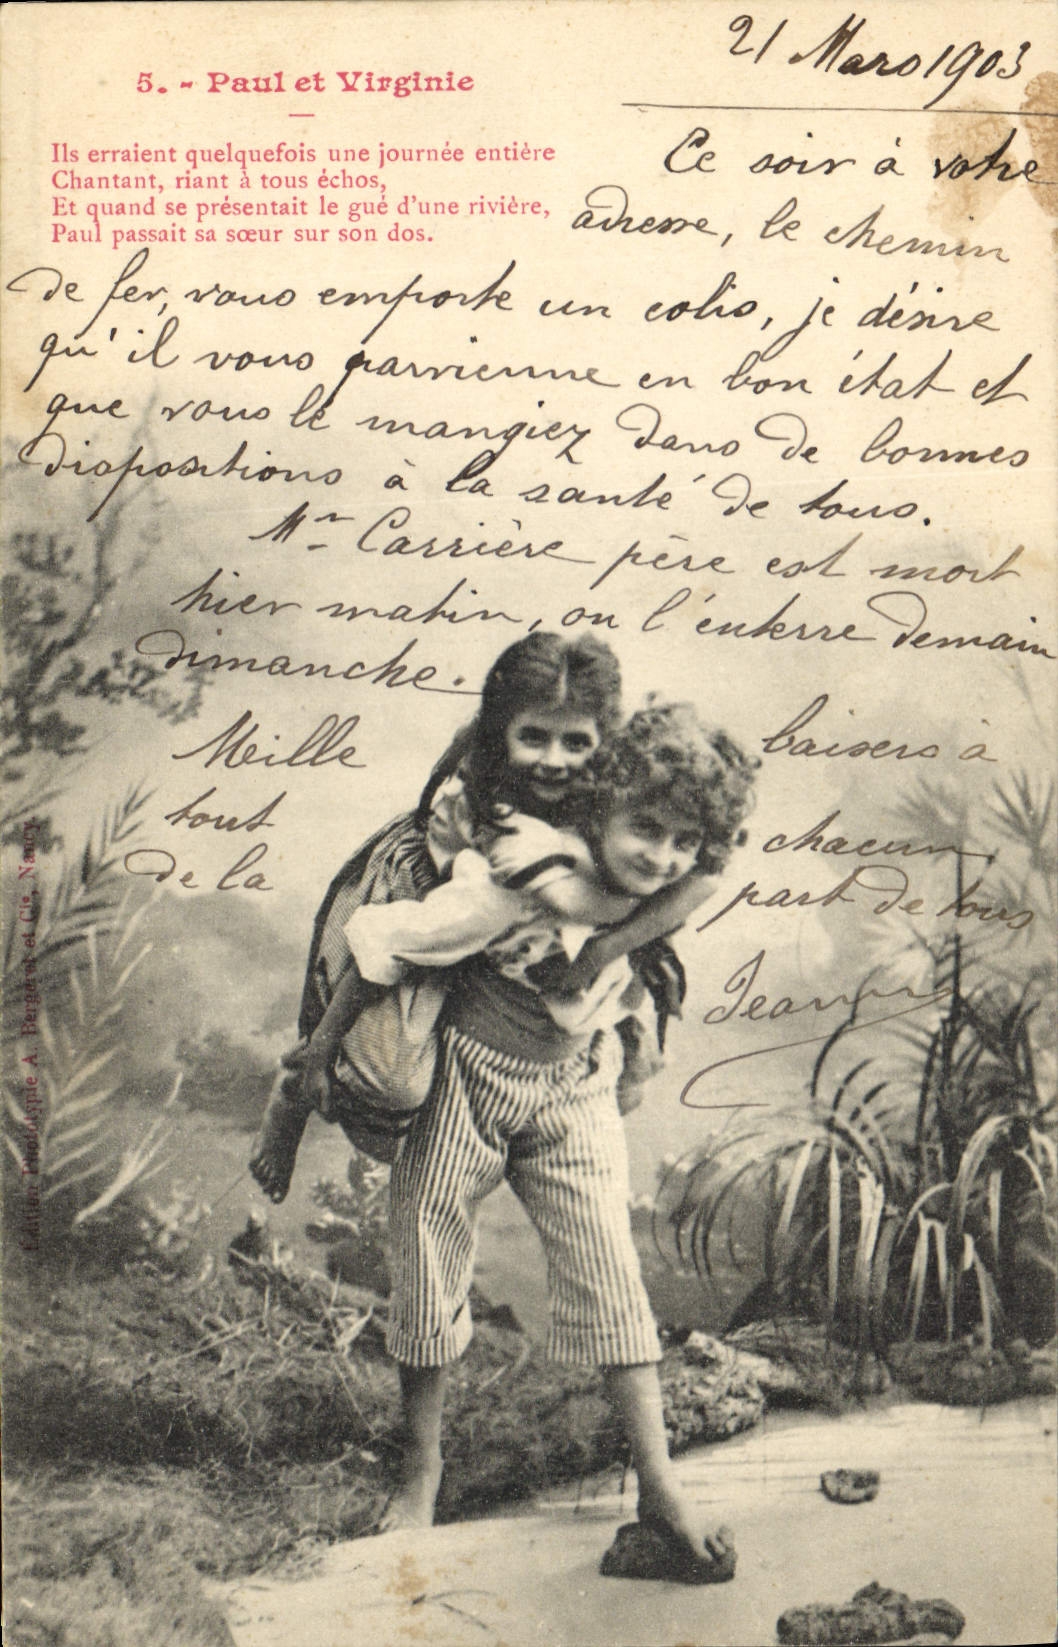 21 Mars 1903
5. - Paul et Virginie
Ils erraient quelquefois une journée entière
Chantant, riant à tous échos,
Et quand se présentait le gué d'une rivière,
Paul passait sa sœur sur son dos.
Ce soir à votre
adresse, le chemin
de fer, vous emporte un colis, je désire
qu'il vous parvienne en bon état et
que vous le mangiez dans de bonnes
dispositions à la santé de tous.
Mr Carrière père est mort
hier matin, on l'enterre demain
dimanche.
Mille baisers à
tout chacun
de la part de tous
Jeanne
Edition Phototypie A. Bergeret et Cie, Nancy.